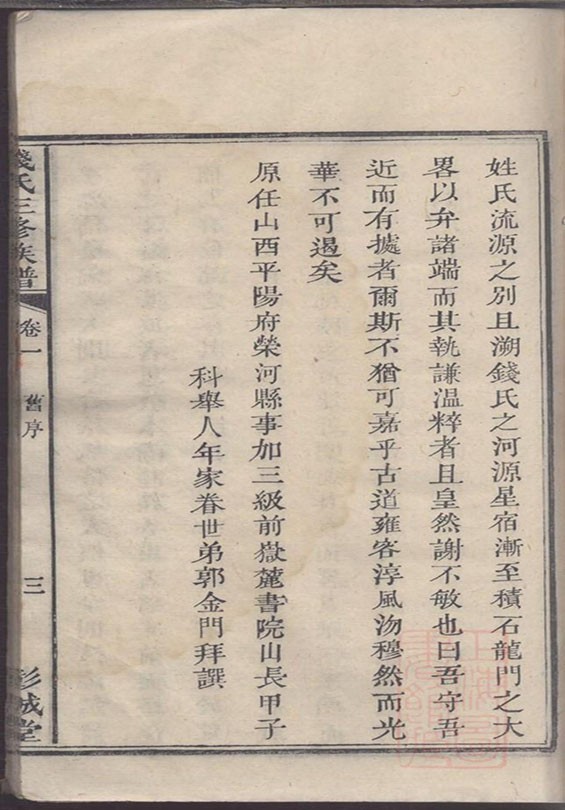 姓氏流源之別且溯錢氏之河源星宿漸至積石龍門之大
畧以弁諸端而其執謙溫粹者且皇然謝不敏也曰吾守吾
近而有據者爾斯不猶可嘉乎古道雍容淳風沕穆然而光
華不可遏矣
原任山西平陽府榮河縣事加三級前嶽麓書院山長甲子
科舉人年家眷世弟郭金門拜譔
錢氏三修族譜
卷一
舊序
三
彭城堂